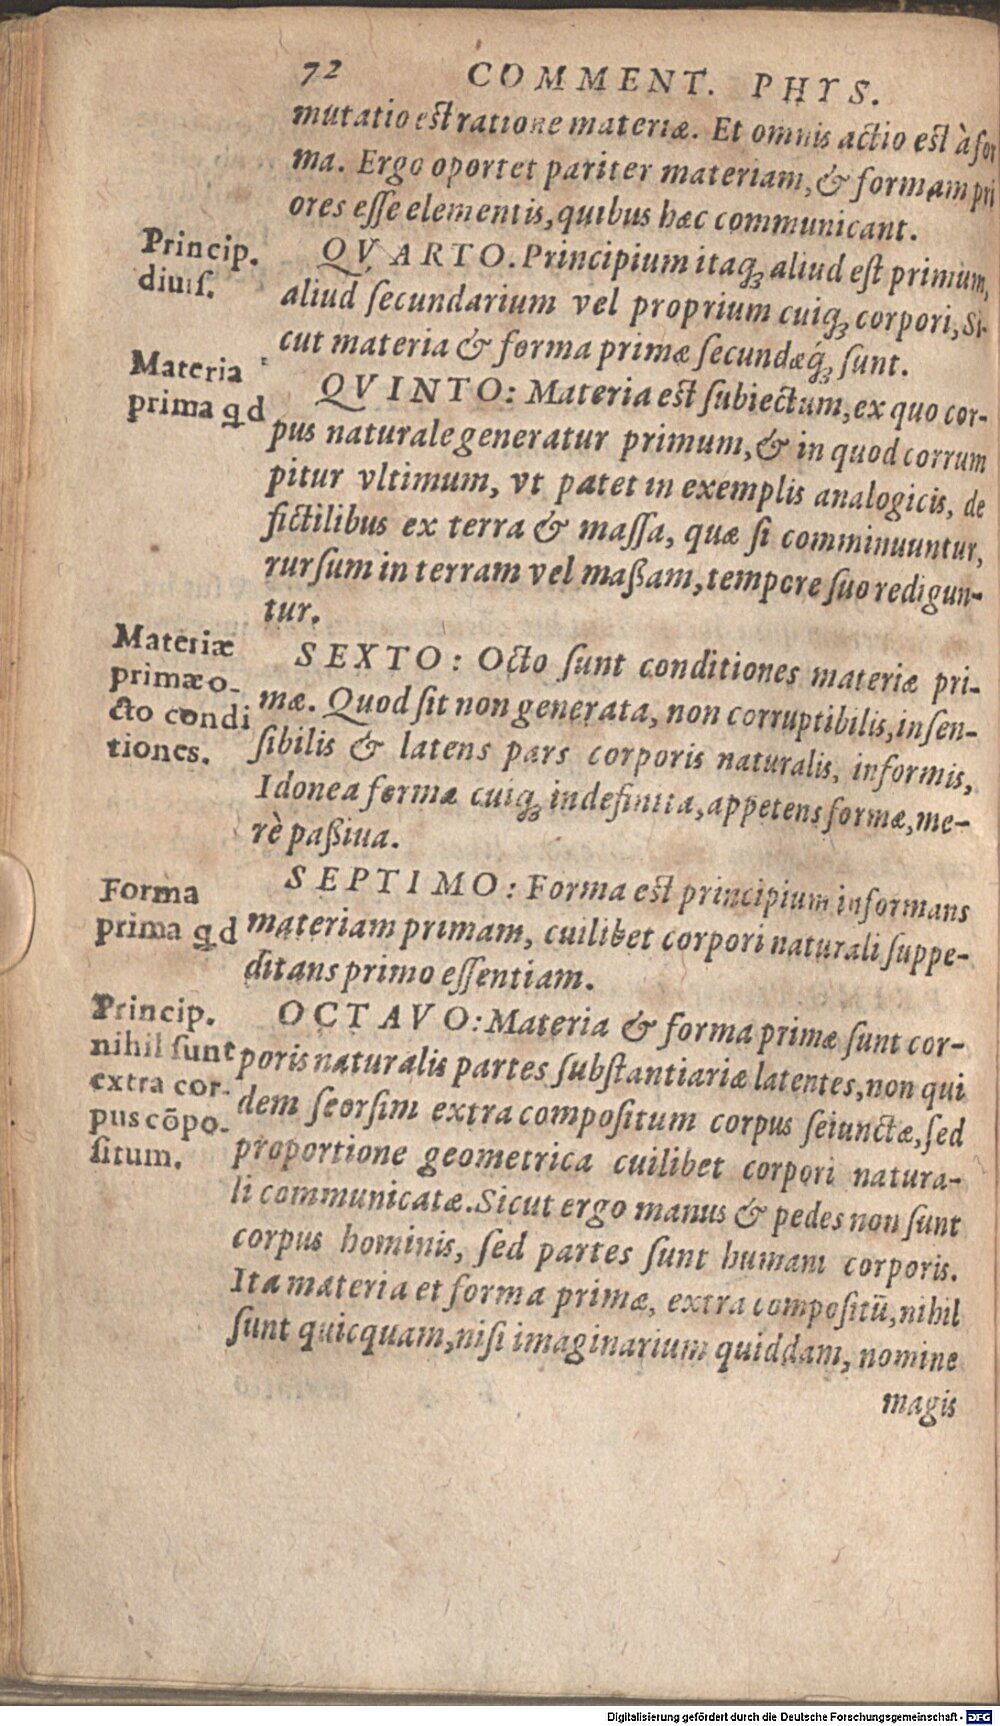 72 COMMENT. PHYS.
mutatio est ratione materiæ. Et omnis actio est à for
ma. Ergo oportet pariter materiam, & formam pri
ores esse elementis, quibus hæc communicant.
Princip.
diuis.
QVARTO. Principium itaq; aliud est primum,
aliud secundarium vel proprium cuiq; corpori, Si-
cut materia & forma primæ secundæq́; sunt.
Materia
prima qd
QVINTO: Materia est subiectum, ex quo cor-
pus naturale generatur primum, & in quod corrum
pitur vltimum, vt patet in exemplis analogicis, de
fictilibus ex terra & massa, quæ si comminuuntur,
rursum in terram vel maßam, tempore suo redigun-
tur.
Materiæ
primæ o-
cto condi
tiones.
SEXTO: Octo sunt conditiones materiæ pri-
mæ. Quod sit non generata, non corruptibilis, insen-
sibilis & latens pars corporis naturalis, informis,
Idonea formæ cuiq; indefinita, appetens formæ, me-
rè paßiua.
Forma
prima qd
SEPTIMO: Forma est principium informans
materiam primam, cuilibet corpori naturali suppe-
ditans primo essentiam.
Princip.
nihil sunt
extra cor-
pus cõpo-
situm.
OCTAVO: Materia & forma primæ sunt cor-
poris naturalis partes substantiariæ latentes, non qui
dem seorsim extra compositum corpus seiunctæ, sed
proportione geometrica cuilibet corpori natura-
li communicatæ. Sicut ergo manus & pedes non sunt
corpus hominis, sed partes sunt humani corporis.
Ita materia et forma primæ, extra compositũ, nihil
sunt quicquam, nisi imaginarium quiddam, nomine
magis
Digitalisierung gefördert durch die Deutsche Forschungsgemeinschaft - DFG